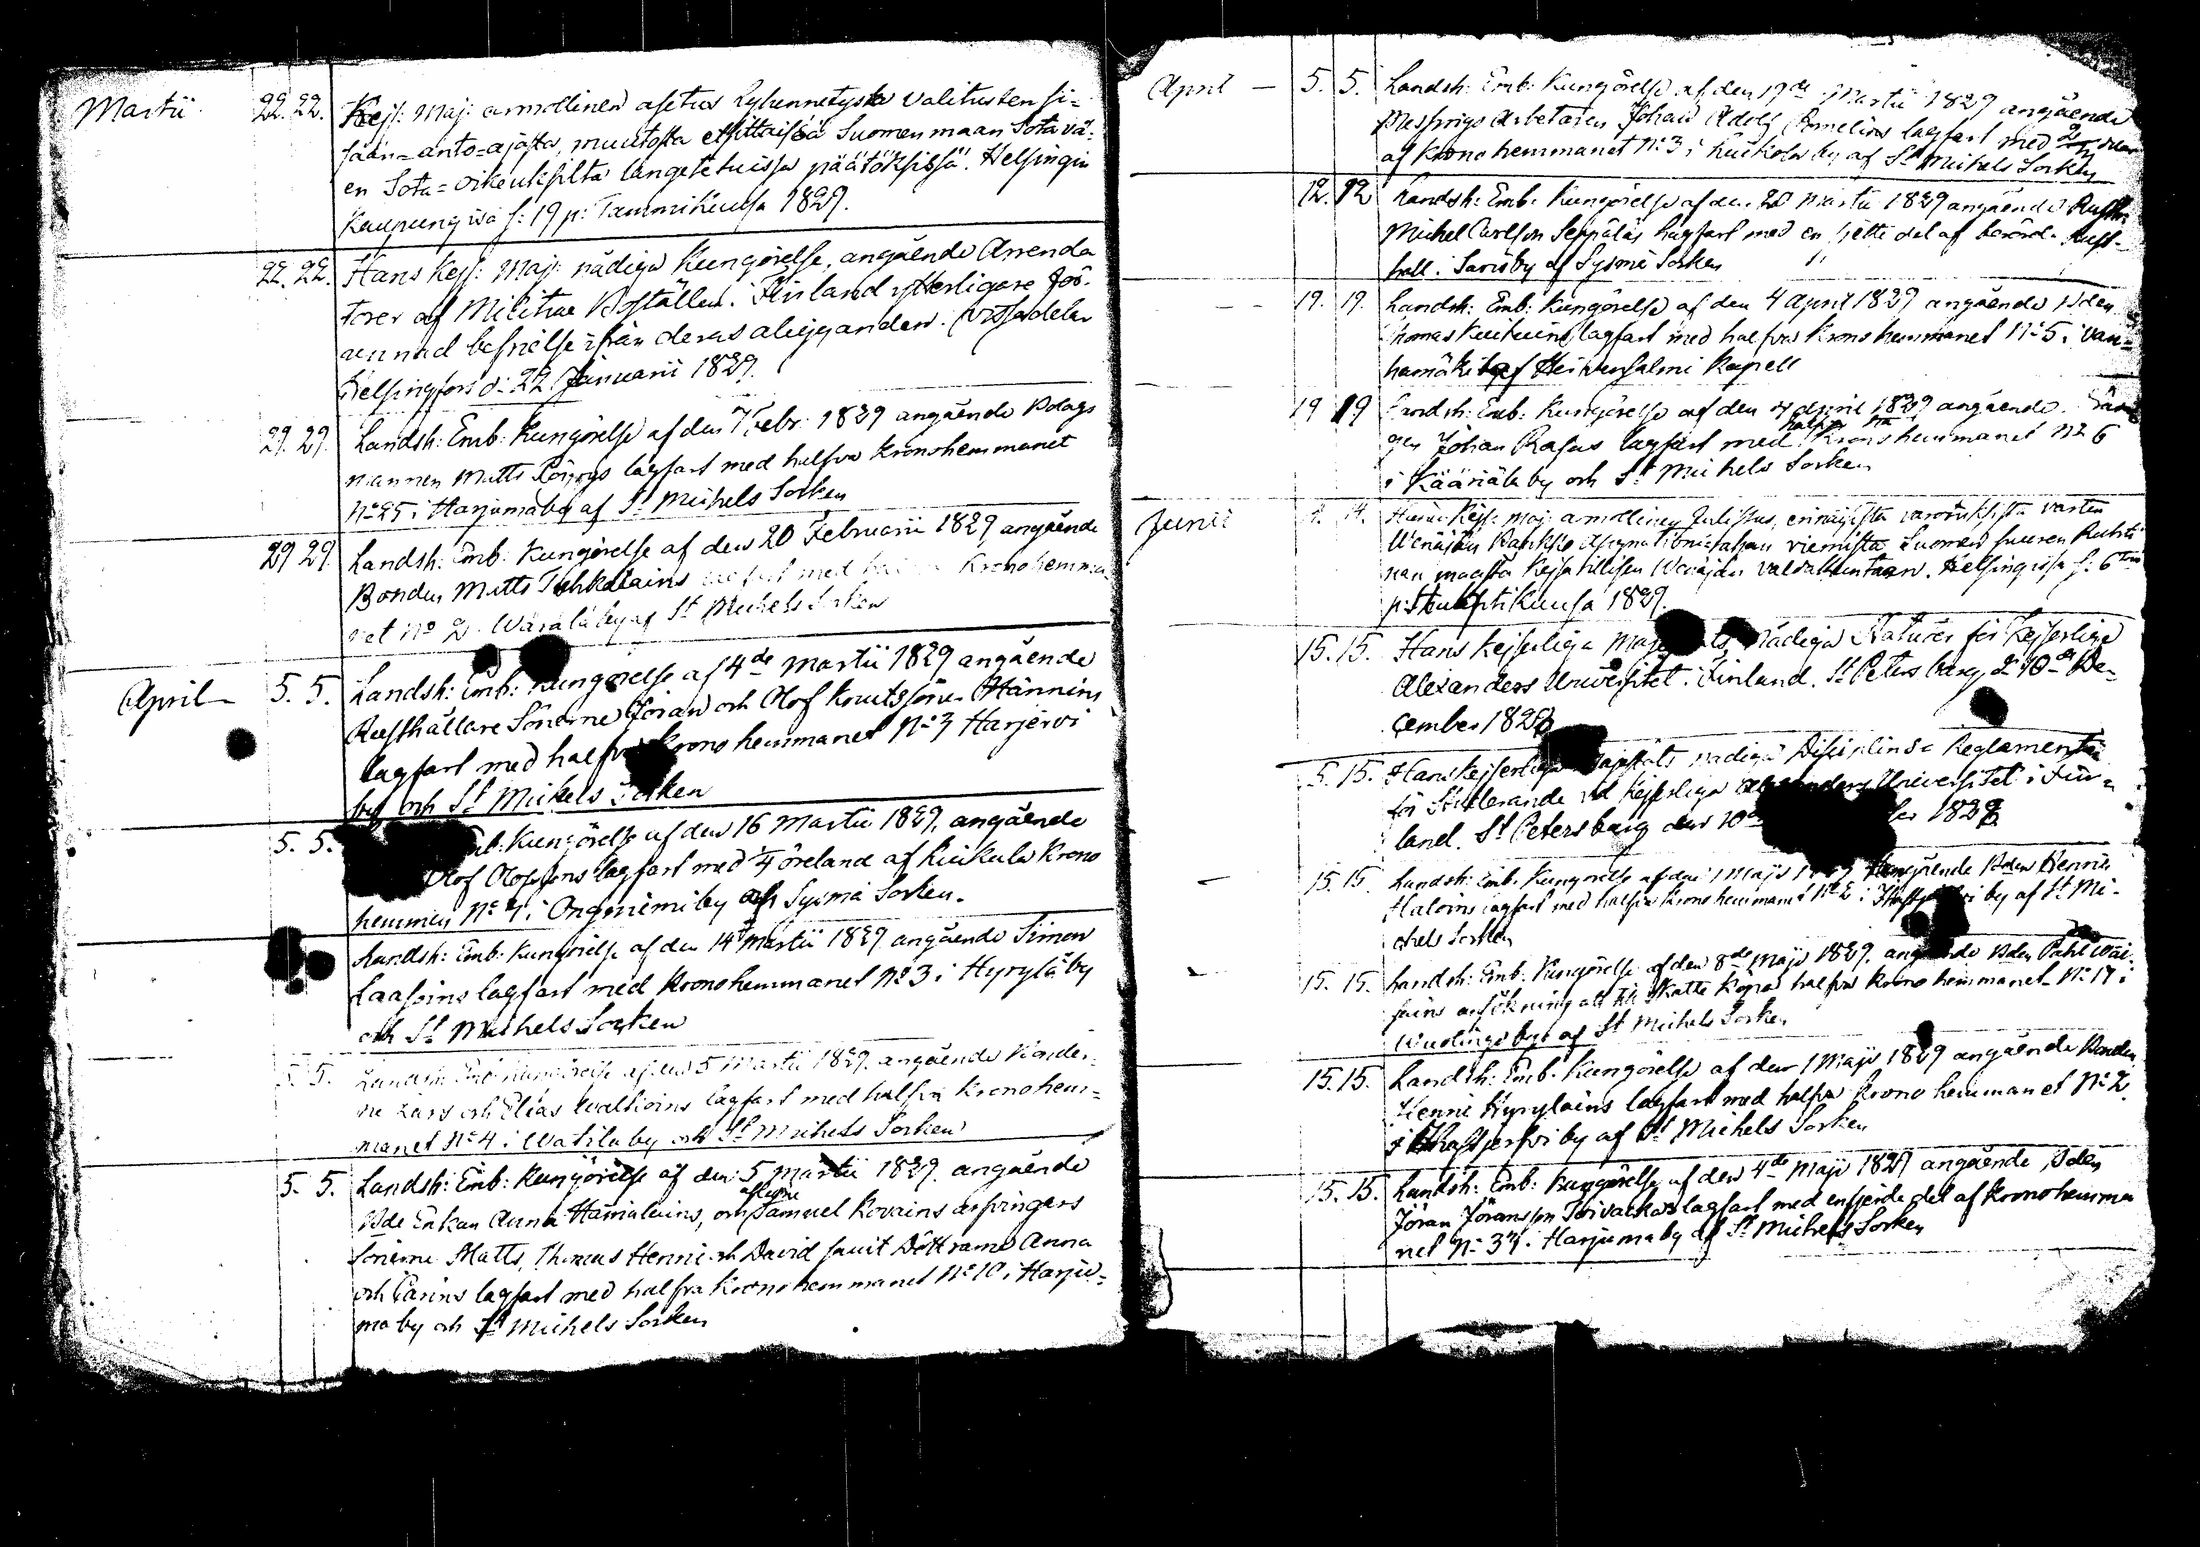 Martii 22. 22. Kejs: Maj: armollinen asetus Lyhennetystä valitusten si=
sään=anto=ajasta, muutosta etsittaissä Suomen maan Sota vä=
en Sota=oikeuksilta langetetuissa päätöksissä. Helsingin
Kaupungisa s: 19 p: Tammikuusa 1829.
22. 22. Hans Kejs: Maj: nådiga Kungörelse, angående Arrenda
torer af Militiae Boställen i Finland ytterligare för-
unnad befrielse ifrån deras åligganden. vissa delar
Helsingfors d: 22 Januarii 1829.
29. 29. Landsh: Emb: Kungörelse af den 7 Febr: 1829 angående Bolags
mannen Matts lagfart med halfva Kronohemmanet
No 25 i Harjumaby af St Michels Socken
29 29. Landsh: Emb: Kungörelse af den 20 Februarii 1829 angående
Bonden Matts lagfart med Kronohemma
net No 2 by af St Michels Socken
April 5. 5. Landsh: Emb: Kungörelse af 4de Martii 1829 angående
Rusthållare Sönerne Jöran och Olof Knutssöner Hännins
lagfart med halfva Krono hemmanet No 3 Harjervi
by och St Michels Socken
5. 5. Emb: Kungörelse af den 16 Martii 1829, angående
Olof Olofsons lagfart med öreland af Krono
hemman No 4 i Onganiemi by och Sysmä Socken.
Landsh: Emb: Kungörelse af den 14 Martii 1829 angående Simon
Laasoins lagfart med Kronohemmanet No 3 i Hyryläby
och St Michels Socken
5. 5. Landsh: Emb: Kungörelse af den 5 Martii 1829. angående Bönder-
ne Lars och Elias lagfart med halfva Kronohem=
manet No 4 i Watilaby och St Michels Socken
5. 5. Landsh: Emb: Kungörelse af den 5 Martii 1829. angående
Bde Enkan Anna Hämäläins, och aflidne Samuel Kovains arfvingars
Sönerne Matts, Thomas Henric och David samt Döttrarne Anna
och Carins lagfart med halfva Kronohemmanet No 10 i Harju=
ma by och St Michels Socken
April — 5. 5. Landsh: Emb: Kungörelse af den 17de Martii 1829 angående
Arbetaren Johan Adolf lagfart med
af Krono hemmanet No 3 i by af St Michels Socken
12. 12 Landsh: Emb: Kungörelse af den 20 Martii 1829 angående
Michel Carlson Seppäläs lagfart med en sjette del af berörde Rust-
håll i by af Sysmä Socken
19. 19. Landsh: Emb: Kungörelse af den 4 April 1829 angående Bden
Thomas lagfart med halfva Krono hemmanet No 5 i Van=
hamäki by af Kapell
19 19 Landsh: Emb: Kungörelse af den 4 April 1829 angående
Johan lagfart med halfva Kronohemmanet No 6
i Kääriälä by och St Michels Socken
Junii 14. Hänen Kejs: Maj: armollinen Julistus, erinäisistä varoituksista vasten
Wenäjän Pankki viemistä Suomen suuren Ruhti
nan maasta Kejsarilliseen Wenäjän valdakuntaan. Helsingissä s: 6
p: Huhtikuusa 1829.
15. 15. Hans Kejserliga Majestäts Nådiga Statuter för Kejserliga
Alexanders Universitet i Finland. St Petersburg, d 10de De-
cember 1828
5. 15. Hans Kejserliga Majestäts nådiga Disciplins=Reglemente
för Studerande vid Kejserliga Alexanders Universitet i Fin=
land. St Petersburg den 10de
15. 15. Landsh: Emb: Kungörelse af den 1 Maji angående Bden Henric
Haloins lagfart med halfva Krono hemmanet No 2 i by af St Mi-
chels Socken
15. 15. Landsh: Emb: Kungörelse af den 8de Maji 1829, angående Bden Påhl
ansökning att till Skatte köpa halfva Krono hemmanet No 17 i
by af St Michels Socken
15. 15. Landsh: Emb: Kungörelse af den 1 Maji 1829 angående Bonden
Henric Hyryläins lagfart med halfva Krono hemmanet No 2.
i by af St Michels Socken
15. 15. Landsh: Emb: Kungörelse af den 4de Maji 1829 angående Bden
Jöran Jöransson lagfart med en fjerde del af Kronohemma
net No i Harjumaby af St Michels Socken